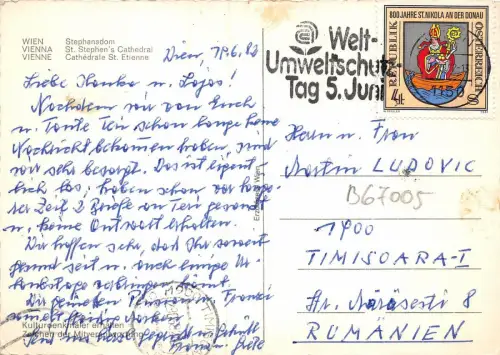 WIEN Stephansdom
VIENNA St. Stephen's Cathedral
VIENNE Cathédrale St. Etienne
Wien, 19.6.82
Liebe Ilonka u. Lajos!
Nachdem wir von Euch
u. Tante Teri schon lange keine
Nachricht bekommen haben, sind
wir sehr besorgt. Was ist eigent-
lich los, haben schon vor länge-
rer Zeit 2 Briefe an Teri gesandt
u. keine Antwort erhalten.
Wir hoffen sehr, daß Ihr soweit
gesund seit u. auch einige
verbringen könnt.
Kulturdenkmäler erhalten
Welt-
Umweltschutz
Tag 5. Juni
800 JAHRE ST. NIKOLA AN DER DONAU
REPUBLIK ÖSTERREICH
4 S
1150
Herrn u. Frau
Martin LUDOVIC
B67005
1900
TIMISOARA-I
Str. 8
RUMÄNIEN